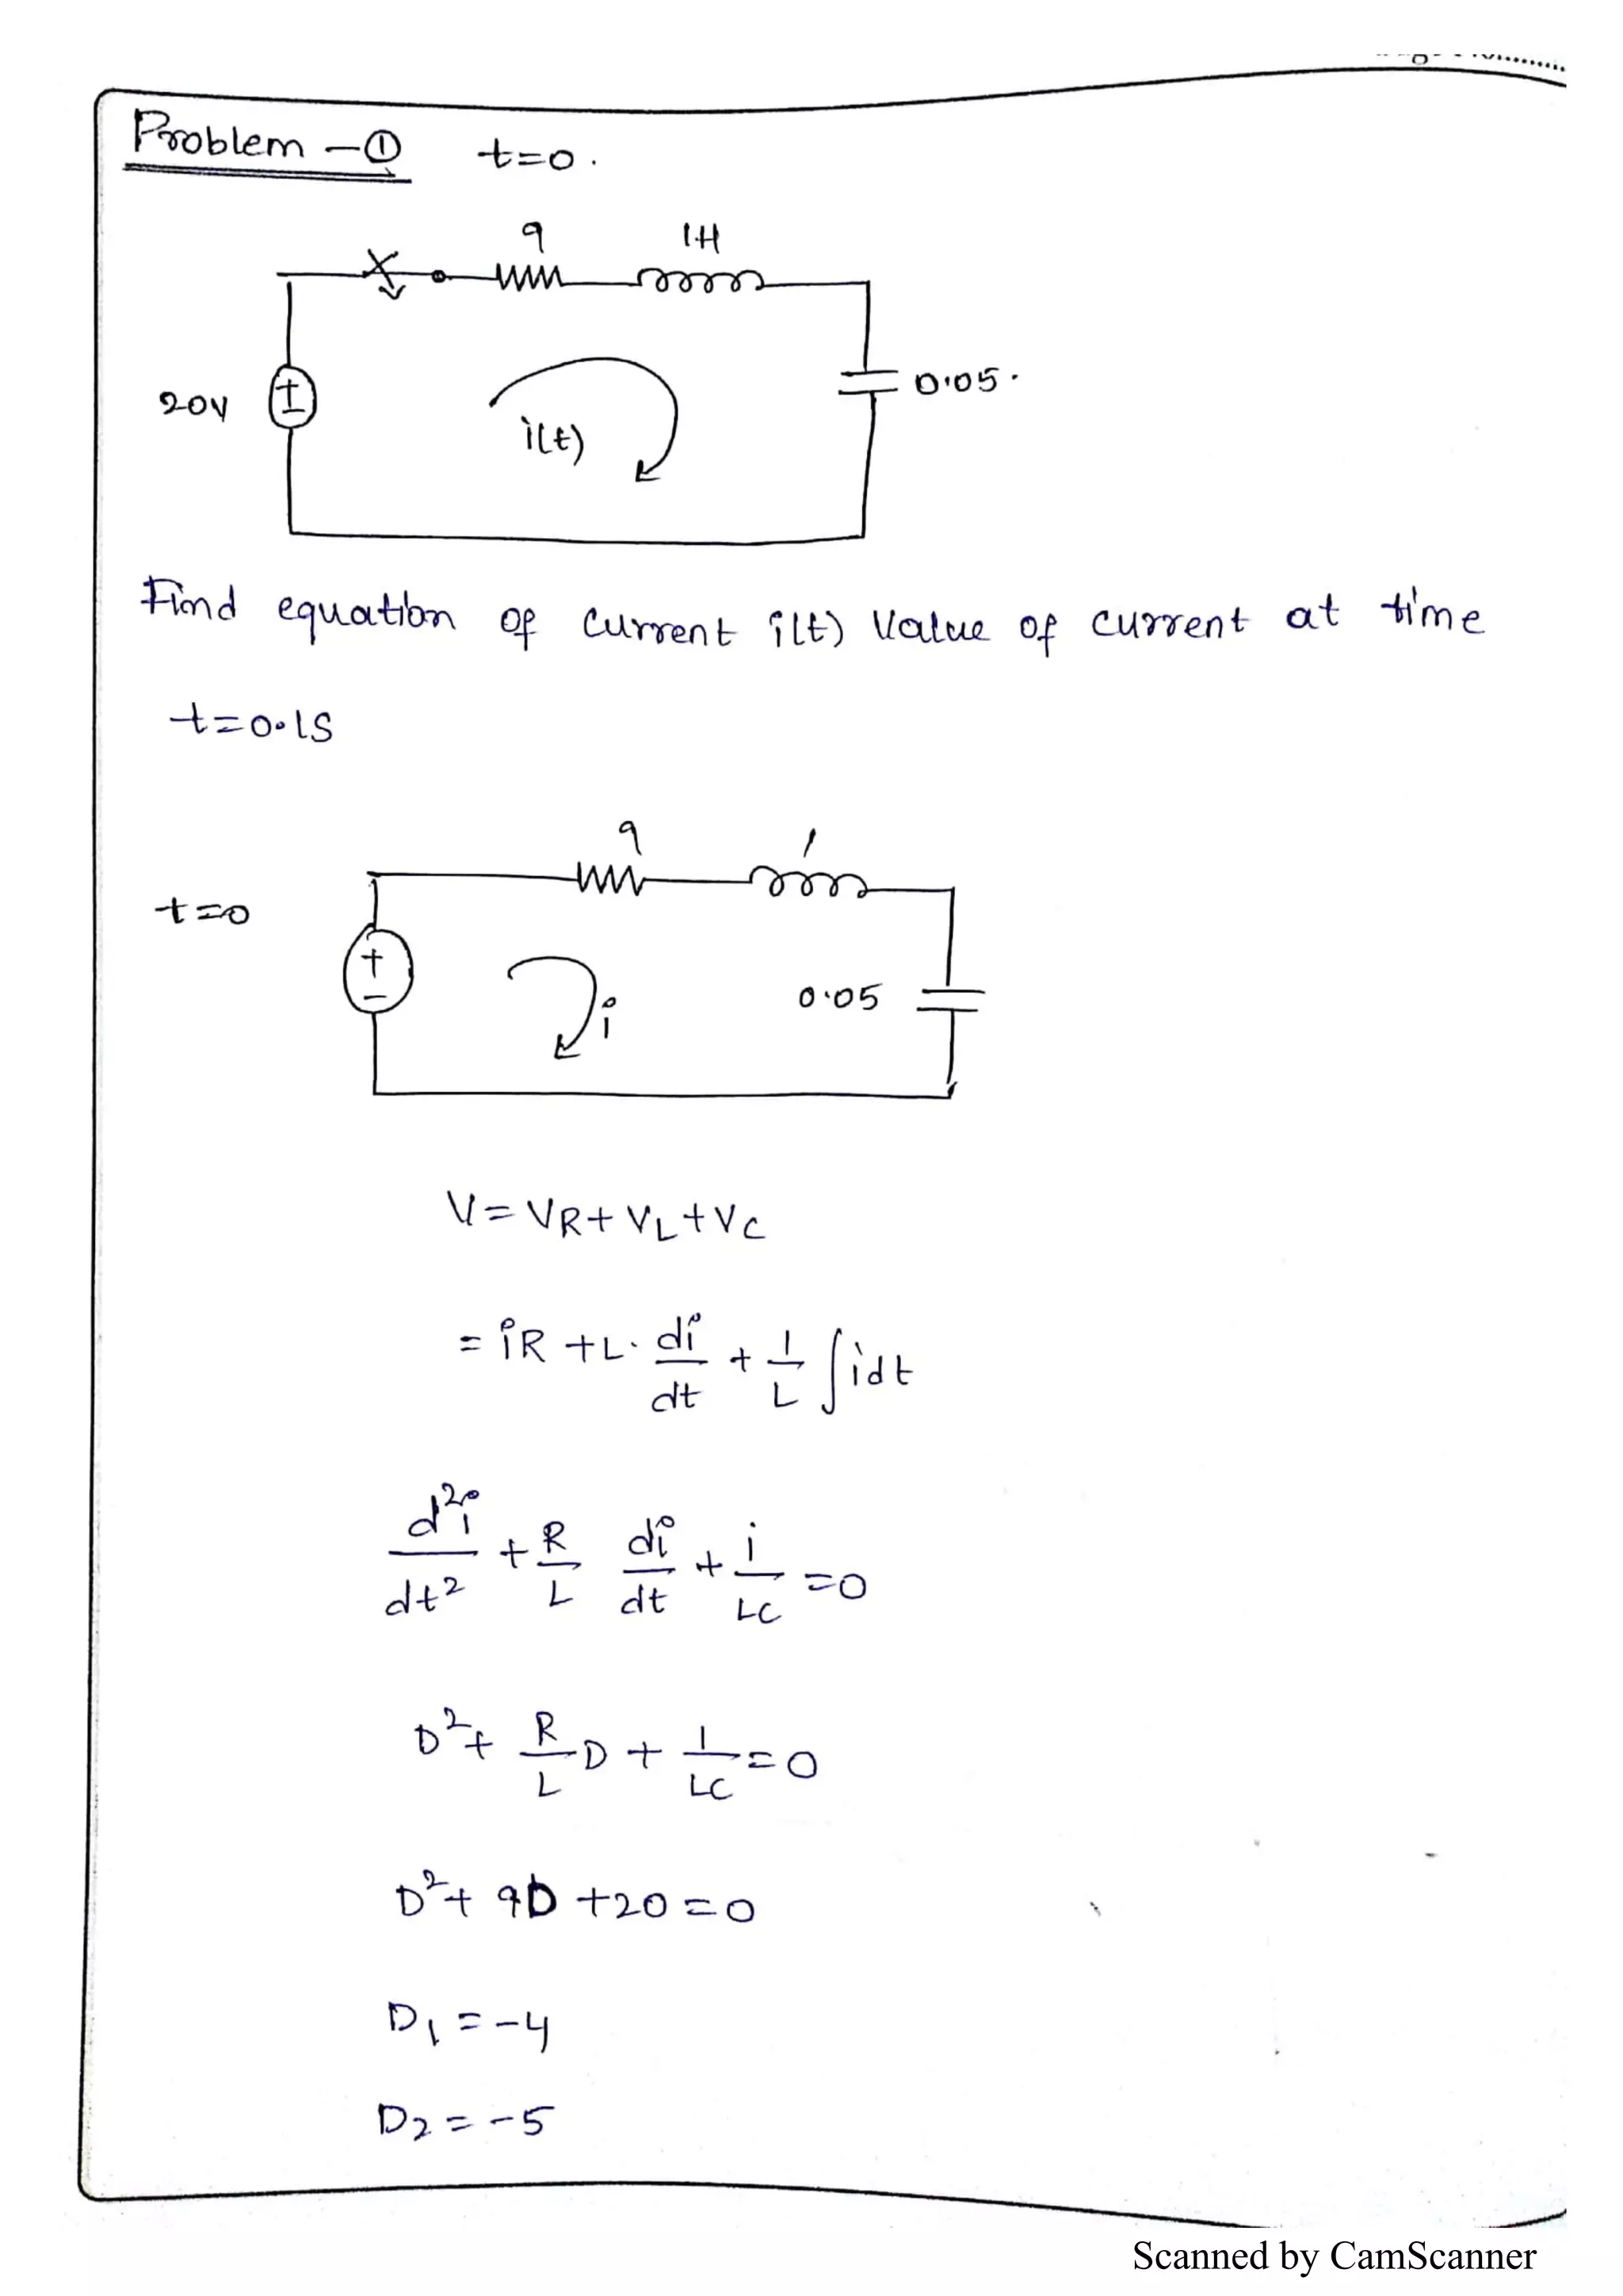 Problem - ① t=0.
9 1H
20V + - i(t) 0.05.
Find equation of current i(t) value of current at time
t=0.1S
9 1
t=0 + - i 0.05
V = VR + VL + VC
= iR + L. di/dt + 1/L ∫idt
d²i/dt² + R/L di/dt + i/LC = 0
D² + R/L D + 1/LC = 0
D² + 9D + 20 = 0
D₁ = -4
D₂ = -5
Scanned by CamScanner